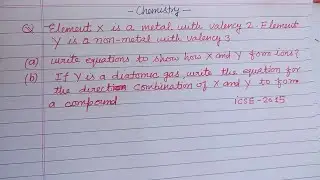 - Chemistry -
Q Element X is a metal with valency 2. Element
Y is a non-metal with valency 3.
(a) write equations to show how X and Y form ions?
(b) If Y is a diatomic gas, write the equation for
the direction combination of X and Y to form
a compound
ICSE-2015